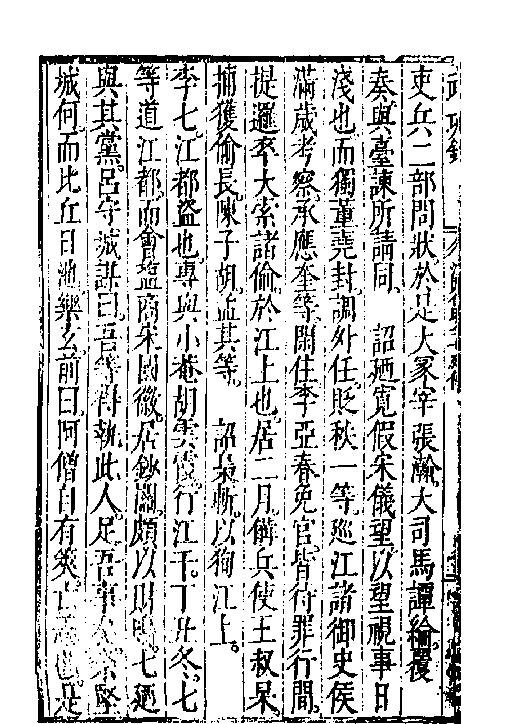 吏兵二部問狀於是大冢宰張瀚大司馬譚綸覆
奏與臺諫所請同　詔廼寬假宋儀望以望視事日
淺也而獨董堯封調外任貶秩一等廵江諸御史侯
滿歲考察承應奎等閑住李亞春免官皆待罪行間
提邏卒大索諸偷於江上也居二月備兵使王叔杲
捕獲偷長陳子胡孟其等　詔梟斬以狥江上
李七江都盜也專與小菴胡雲霞行江干丁丑冬七
等道江都而會盬商朱國徵居鈔關頗以財　七廼
與其黨呂守城謀曰吾等得執此人足吾事　　堅
城何而比丘日池樂玄前曰阿僧自有筴　　　是